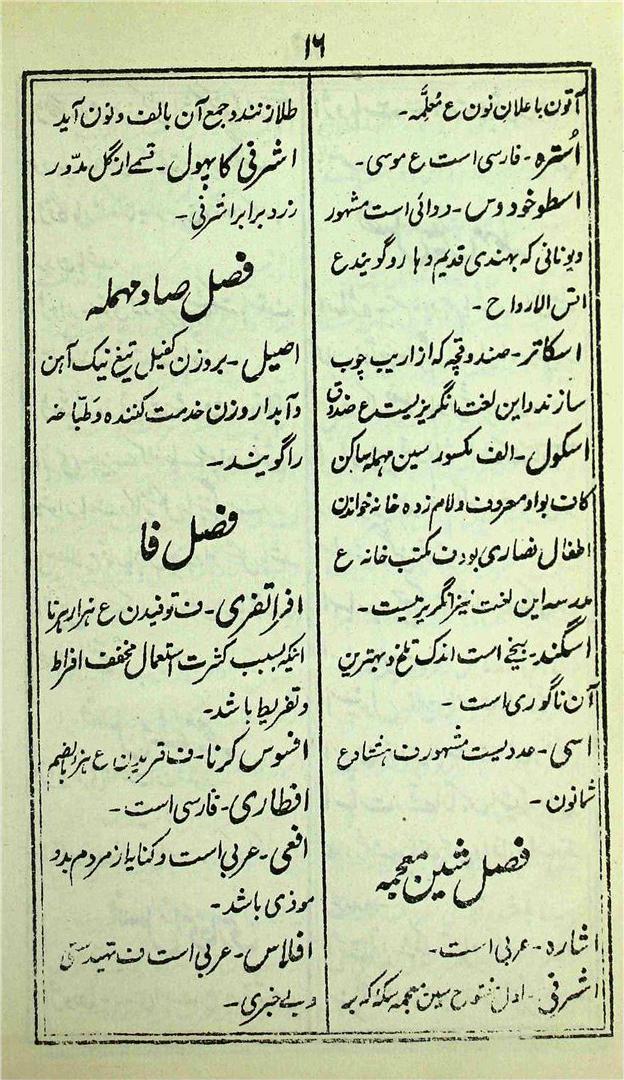 ۱۶
آتون با علان نون ع مُعلِّمَه۔
اُستره۔ فارسی است ع موسی۔
اسطوخودوس۔ دوائی است مشهور
ویونانی که بهندی قدیم دهارو گویند ع
انس الارواح۔
اسکاتر۔ صندوقچه که از اریب چوب
سازند و این لغت انگریزیست ع صندوق
اسکول۔ الف مکسور سین مهمله ساکن
کاف بواو معروف و لام زده خانه خواندن
اطفال نصاری بود ف مکتب خانه ع
مدرسه این لغت نیز انگریزیست۔
اسگند۔ بیخے است اندک تلخ و بهترین
آن ناگوری است۔
اسی۔ عددیست مشهور ف هشتاد ع
ثمانون۔
فصل شین معجمه
اشاره۔ عربی است۔
اشرفی۔ اول مفتوح سین معجمه سکه که بر
طلا زنند و جمع آن بالف و نون آید
اشرفی کا پهول۔ قسمے از گل مدّور
زرد برابر اشرفی۔
فصل صاد مهمله
اصیل۔ بروزن کفیل تیغ نیک آهن
و آبدار و زن خدمت کننده و طبّاخه
را گویند۔
فصل فا
افراتفری۔ ف توفیدن ع هزاهز نا
اینکه بسبب کثرت استعمال مخفف افراط
و تفریط باشد۔
افسوس کرنا۔ ف ع
افطاری۔ فارسی است۔
افعی۔ عربی است و کنایه از مردم بد و
موذی باشد۔
افلاس۔ عربی است ف تهیدستی
و بے چیزی۔